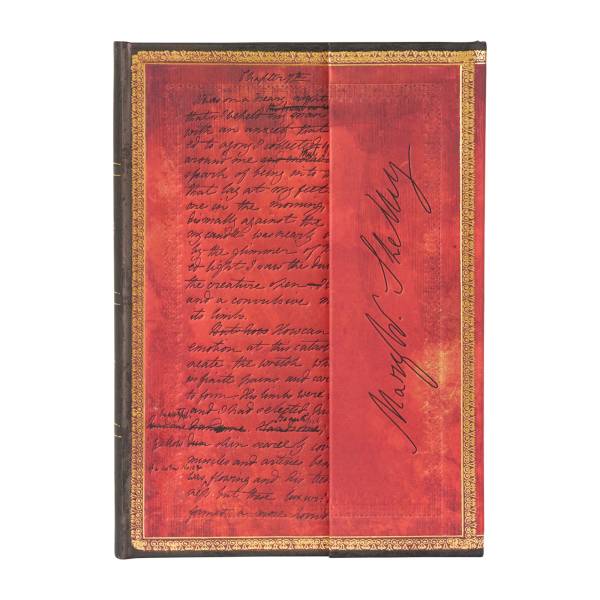 Chapter 7th
It was on a dreary night
that I beheld my man
with an anxiety that
ed to agony I collected
around me
spark of being into
that lay at my feet
one in the morning,
dismally against the
my candle was nearly
by the glimmer of the
ed light I saw the du
the creature open
and a convulsive m
its limbs.
How can
emotion at this catas
create the wretch
infinite pains and care
to form. His limbs were
and I had selected
handsome. Handsome
yellow skin scarcely cov
muscles and arteries bea
was flowing and his
all but these luxuri
formed a more horrid
Mary W. Shelley